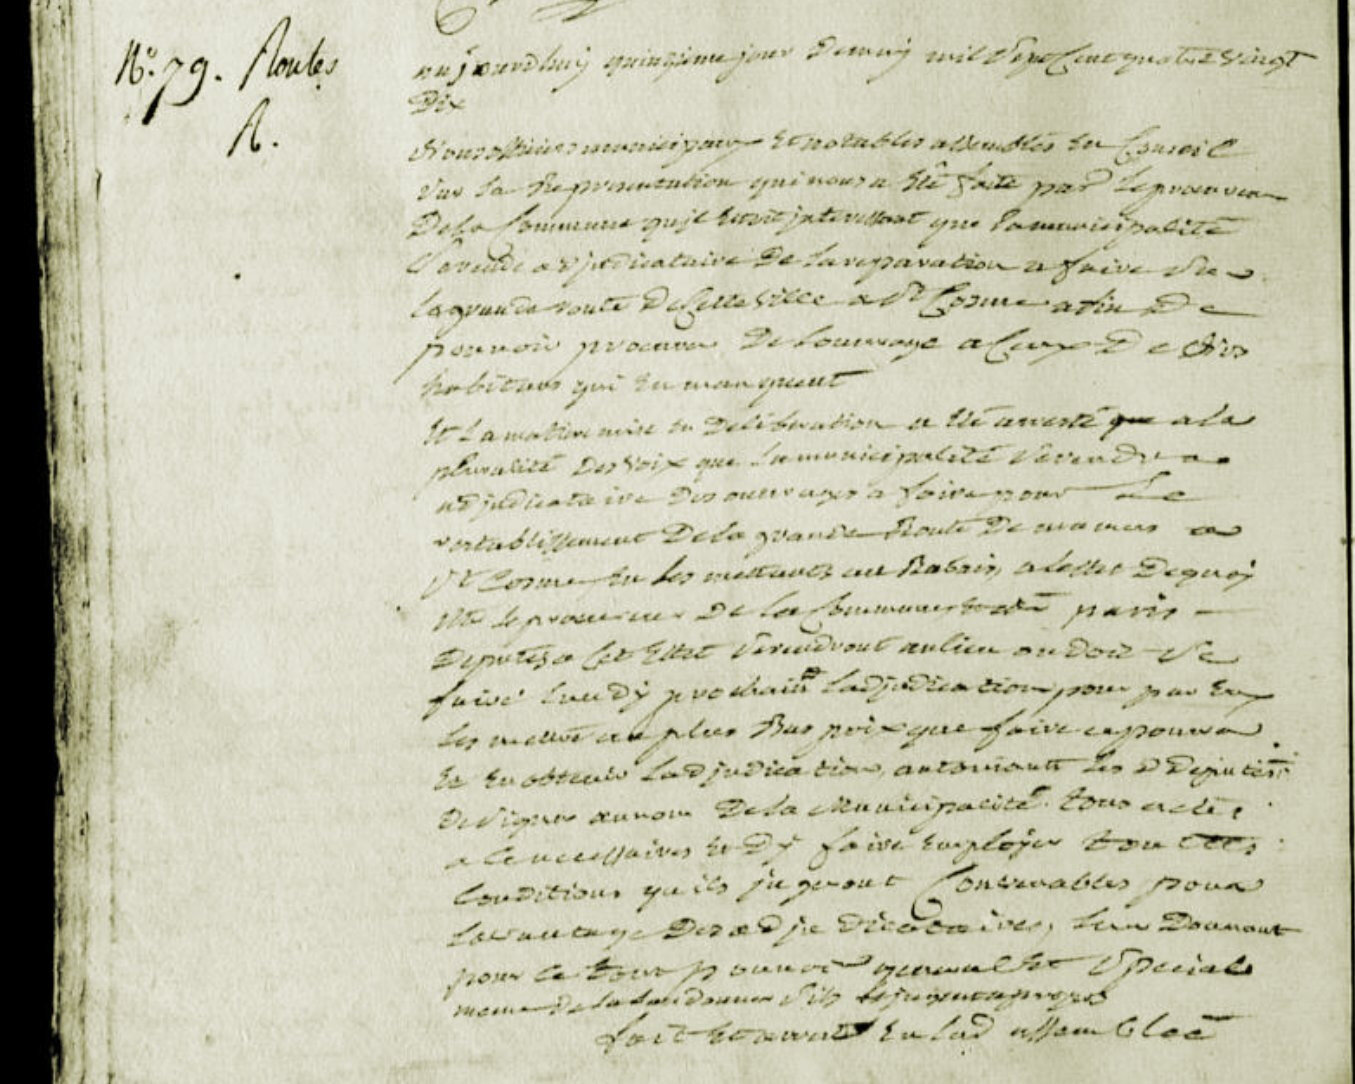 N°. 79. Routes
A.
aujourdhuij quinzieme jour de may mil sept cent quatre vingt
Dix
Nous officiers municipaux et notables assemblés en Conseil
Sur la Representation qui nous a eté faite par le procureur
De la Commune qu'il seroit interessant que la municipalité
Se rendit adjudicataire De la reparation a faire sur
la grande route De Cette ville a St Cosme afin De
pouvoir procurer De louvrage a Ceux De
habitans qui en manquent
Et La matiere mise en Deliberation a eté arresté que a la
pluralité Des voix que la municipalité Se rendra
adjudicataire Des ouvrages a faire pour Le
retablissement De la grande Route De mamers a
St Cosme en les mettant au Rabais, a leffet De quoy
Mr le procureur De la Commune et paris
Deputés a Cet Effet Se rendront au lieu ou doit Se
faire lundy prochain ladjudication pour par Eux
les mettre au plus Bas prix que faire ce pourra
Et en obtenir ladjudication, autorisant les d Deputés
De signer au nom De la Municipalité tous actes
a ce necessaires et Dy faire Employer touttes
Conditions quils jugeront Convenables pour
lavantage Des adjudicataires, leur Donnant
pour ce tout pouvoir general Et Special
meme de
fait et arreté En lad assemblée